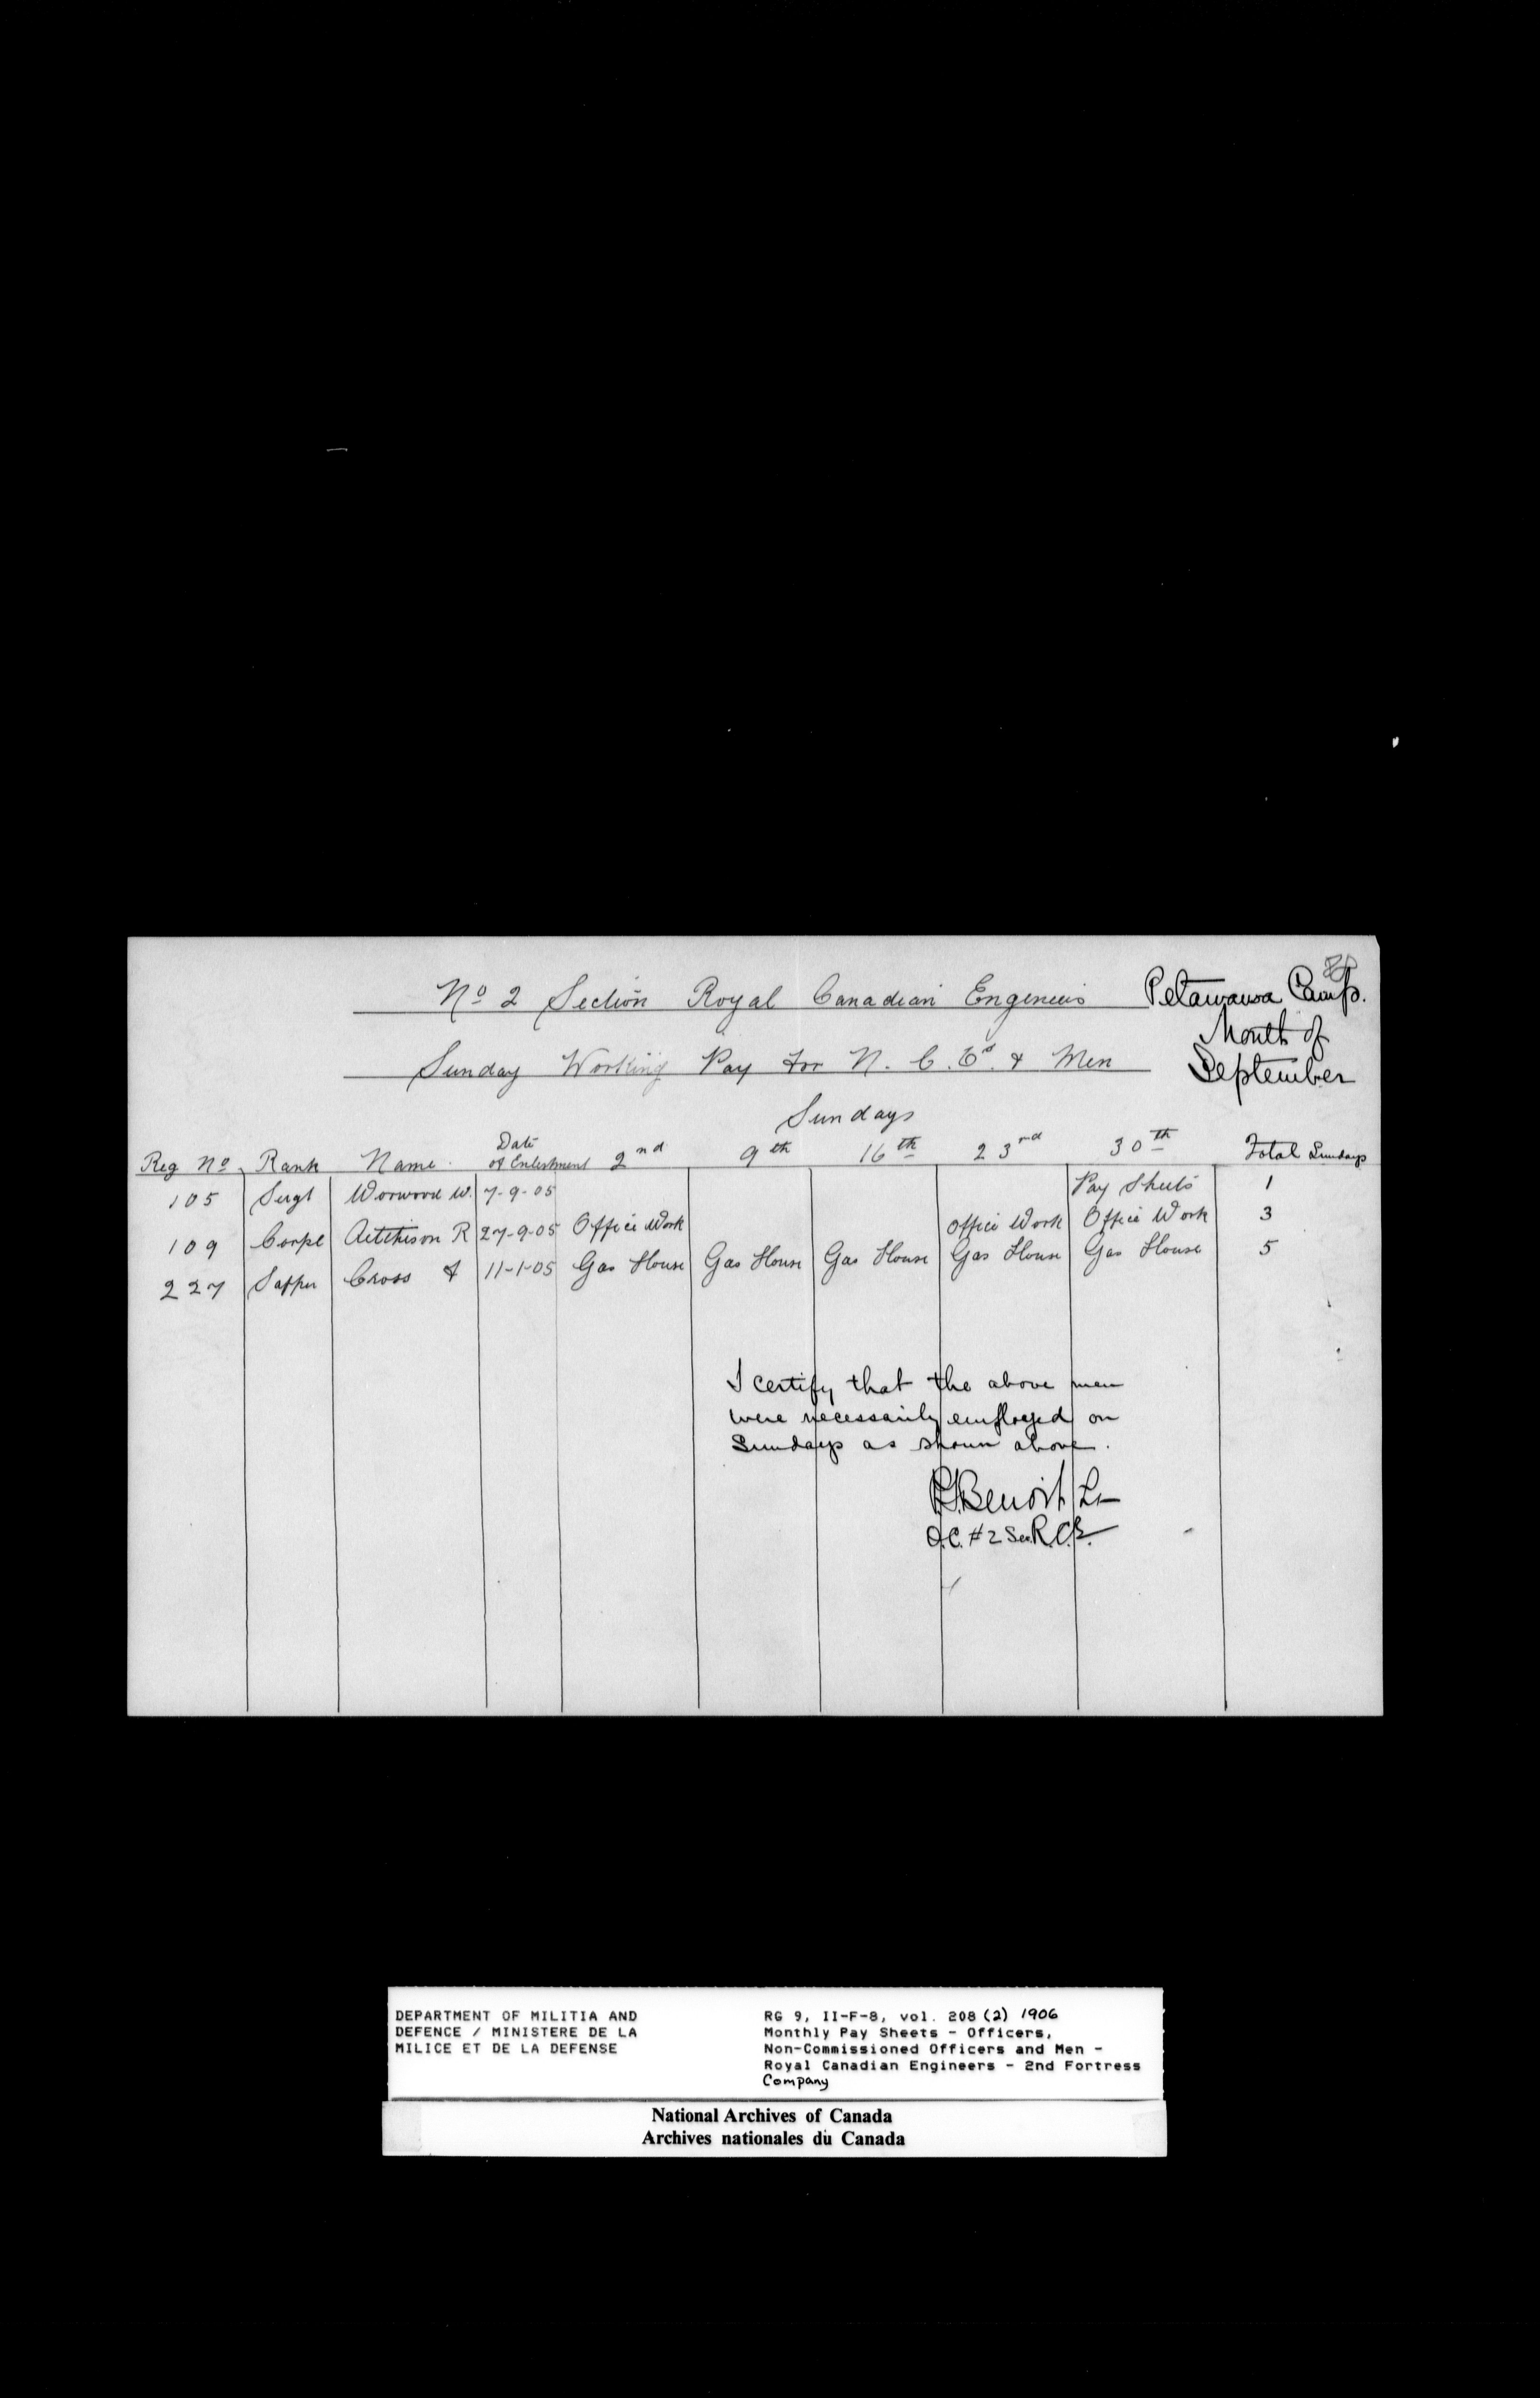 No 2 Section Royal Canadian Engineers Petawawa Camp.
Month of
September
Sunday Working Pay for N. C. Os. & Men
Sundays
Reg No Rank Name. Date of Enlistment 2nd 9th 16th 23rd 30th Total Sundays
105 Sergt Worwood W. 7-9-05 Pay Sheets 1
109 Corpl Aitchison R 27-9-05 Office Work Office Work Office Work 3
227 Sapper Cross 11-1-05 Gas House Gas House Gas House Gas House Gas House 5
I certify that the above men
were necessarily employed on
Sundays as shown above.
Benoit Lt
O.C. #2 Sec R.C.E.
DEPARTMENT OF MILITIA AND
DEFENCE / MINISTERE DE LA
MILICE ET DE LA DEFENSE
RG 9, II-F-8, vol. 208 (2) 1906
Monthly Pay Sheets - Officers,
Non-Commissioned Officers and Men -
Royal Canadian Engineers - 2nd Fortress
Company
National Archives of Canada
Archives nationales du Canada